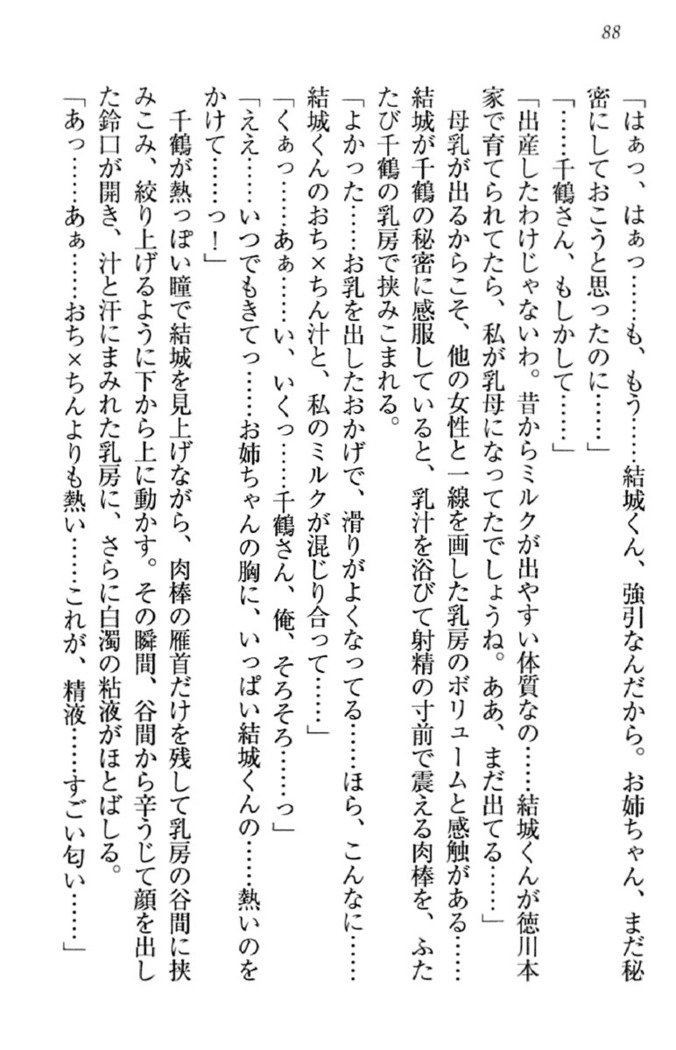 88
「はぁっ、はぁっ……も、もう……結城くん、強引なんだから。お姉ちゃん、まだ秘
密にしておこうと思ったのに……」
「……千鶴さん、もしかして……」
「出産したわけじゃないわ。昔からミルクが出やすい体質なの……結城くんが徳川本
家で育てられてたら、私が乳母になってたでしょうね。ああ、まだ出てる……」
　母乳が出るからこそ、他の女性と一線を画した乳房のボリュームと感触がある……
結城が千鶴の秘密に感服していると、乳汁を浴びて射精の寸前で震える肉棒を、ふた
たび千鶴の乳房で挟みこまれる。
「よかった……お乳を出したおかげで、滑りがよくなってる……ほら、こんなに……
結城くんのおち×ちん汁と、私のミルクが混じり合って……」
「くぁっ……あぁ……い、いくっ……千鶴さん、俺、そろそろ……っ」
「ええ……いつでもきてっ……お姉ちゃんの胸に、いっぱい結城くんの……熱いのを
かけて……っ！」
　千鶴が熱っぽい瞳で結城を見上げながら、肉棒の雁首だけを残して乳房の谷間に挟
みこみ、絞り上げるように下から上に動かす。その瞬間、谷間から辛うじて顔を出し
た鈴口が開き、汁と汗にまみれた乳房に、さらに白濁の粘液がほとばしる。
「あっ……あぁ……おち×ちんよりも熱い……これが、精液……すごい匂い……」